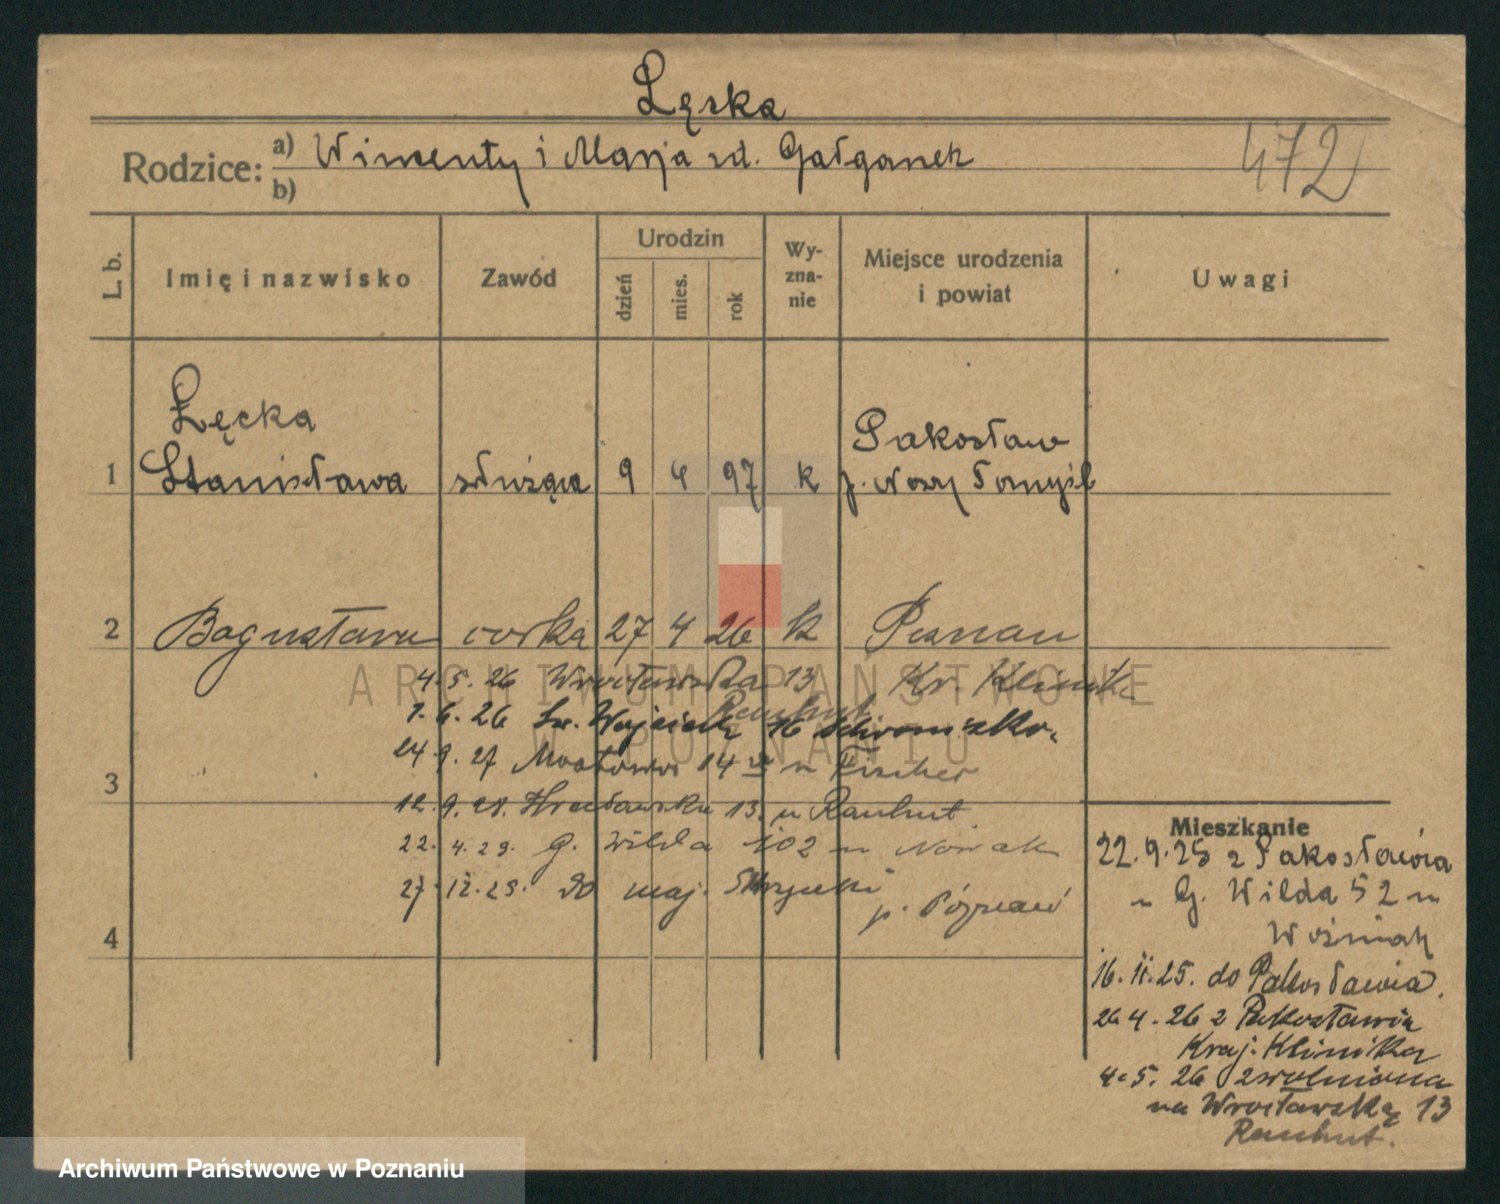 Łęska
Rodzice:
a) Wincenty i Marja zd. Gałganek
b)
472
L. b.
Imię i nazwisko
Zawód
Urodzin
dzień
mies.
rok
Wy-
zna-
nie
Miejsce urodzenia
i powiat
Uwagi
Łęcka
1 Stanisława służąca 9 4 97 k Pakosław
p. Nowy Tomyśl
2 Bogusława córka 27 4 26 k Poznań
Kr. Klinika
4.5.26 Wrocławska 13
Rauhut
1.6.26 Św. Wojciech 16 schronisko.
24.9.27 Mostowa 14 u Fischer
3
12.9.28. Wrocławska 13. u Rauhut
22.4.29. G. Wilda 102 u Nowak
27.12.29. do maj.
p. Poznań
4
Mieszkanie
22.9.25 z Pakosławia
G. Wilda 52 u
Woźniak
16.11.25. do Pakosławia.
26.4.26 z Pakosławia
Kraj. Klinika
4.5.26 zwolniona
na Wrocławską 13
Rauhut.
ARCHIWUM PAŃSTWOWE
W POZNANIU
Archiwum Państwowe w Poznaniu